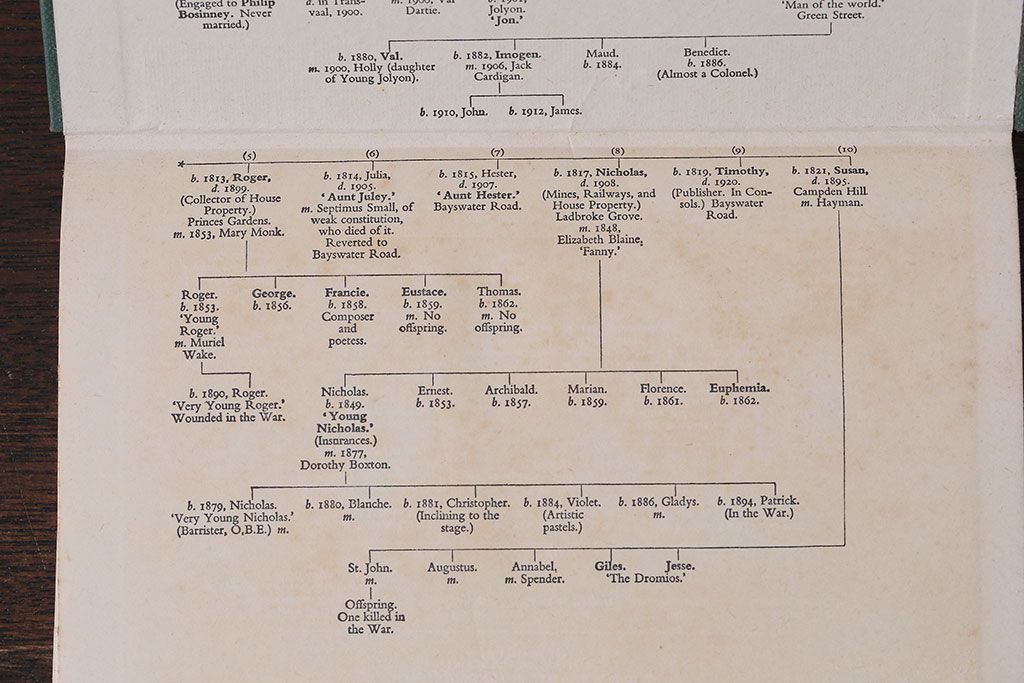 (Engaged to Philip
Bosinney. Never
married.)
d. in Trans-
vaal, 1900.
m. 1900, Val
Dartie.
b. 1901,
Jolyon.
'Jon.'
'Man of the world.'
Green Street.
b. 1880, Val.
m. 1900, Holly (daughter
of Young Jolyon).
b. 1882, Imogen.
m. 1906, Jack
Cardigan.
Maud.
b. 1884.
Benedict.
b. 1886.
(Almost a Colonel.)
b. 1910, John.
b. 1912, James.
*
(5)
b. 1813, Roger,
d. 1899.
(Collector of House
Property.)
Princes Gardens.
m. 1853, Mary Monk.
(6)
b. 1814, Julia,
d. 1905.
'Aunt Juley.'
m. Septimus Small, of
weak constitution,
who died of it.
Reverted to
Bayswater Road.
(7)
b. 1815, Hester,
d. 1907.
'Aunt Hester.'
Bayswater Road.
(8)
b. 1817, Nicholas,
d. 1908.
(Mines, Railways, and
House Property.)
Ladbroke Grove.
m. 1848,
Elizabeth Blaine,
'Fanny.'
(9)
b. 1819, Timothy,
d. 1920.
(Publisher. In Con-
sols.) Bayswater
Road.
(10)
b. 1821, Susan,
d. 1895.
Campden Hill.
m. Hayman.
Roger.
b. 1853.
'Young
Roger.'
m. Muriel
Wake.
George.
b. 1856.
Francie.
b. 1858.
Composer
and
poetess.
Eustace.
b. 1859.
m. No
offspring.
Thomas.
b. 1862.
m. No
offspring.
b. 1890, Roger.
'Very Young Roger.'
Wounded in the War.
Nicholas.
b. 1849.
'Young
Nicholas.'
(Insurances.)
m. 1877,
Dorothy Boxton.
Ernest.
b. 1853.
Archibald.
b. 1857.
Marian.
b. 1859.
Florence.
b. 1861.
Euphemia.
b. 1862.
b. 1879, Nicholas.
'Very Young Nicholas.'
(Barrister, O.B.E.) m.
b. 1880, Blanche.
m.
b. 1881, Christopher.
(Inclining to the
stage.)
b. 1884, Violet.
(Artistic
pastels.)
b. 1886, Gladys.
m.
b. 1894, Patrick.
(In the War.)
St. John.
m.
Augustus.
m.
Annabel,
m. Spender.
Giles.
Jesse.
'The Dromios.'
Offspring.
One killed in
the War.